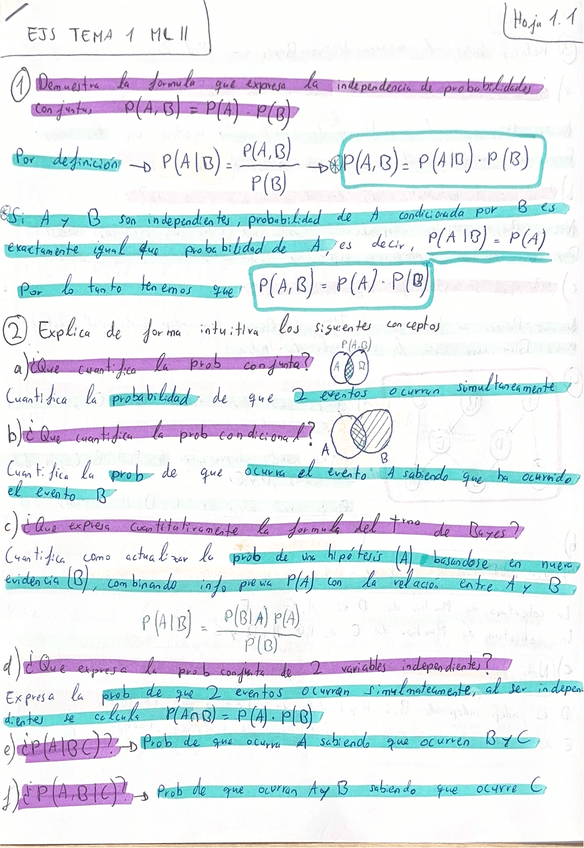 EJS TEMA 1 ML II
Hoja 1.1
① Demuestra la formula que expresa la independencia de probabilidades
conjuntas P(A,B) = P(A) · P(B)
Por definición → P(A|B) = P(A,B) / P(B) → ⊛ P(A,B) = P(A|B) · P(B)
⊛ Si A y B son independientes, probabilidad de A condicionada por B es
exactamente igual que probabilidad de A, es decir, P(A|B) = P(A)
Por lo tanto tenemos que P(A,B) = P(A) · P(B)
② Explica de forma intuitiva los siguientes conceptos
P(A,B)
a) ¿Que cuantifica la prob conjunta? A B
Cuantifica la probabilidad de que 2 eventos ocurran simultaneamente
b) ¿Que cuantifica la prob condicional? A B
Cuantifica la prob de que ocurra el evento A sabiendo que ha ocurrido
el evento B
c) ¿Que expresa cuantitativamente la formula del tma de Bayes?
Cuantifica como actualizar la prob de una hipótesis (A) basandose en nueva
evidencia (B), combinando info previa P(A) con la relación entre A y B
P(A|B) = P(B|A) P(A) / P(B)
d) ¿Que expresa la prob conjunta de 2 variables independientes?
Expresa la prob de que 2 eventos ocurran simulnateamente, al ser indepen
dientes se calcula P(A∩B) = P(A) · P(B)
e) ¿P(A|BC)? → Prob de que ocurra A sabiendo que ocurren B y C
f) ¿P(A,B|C)? → Prob de que ocurran A y B sabiendo que ocurre C